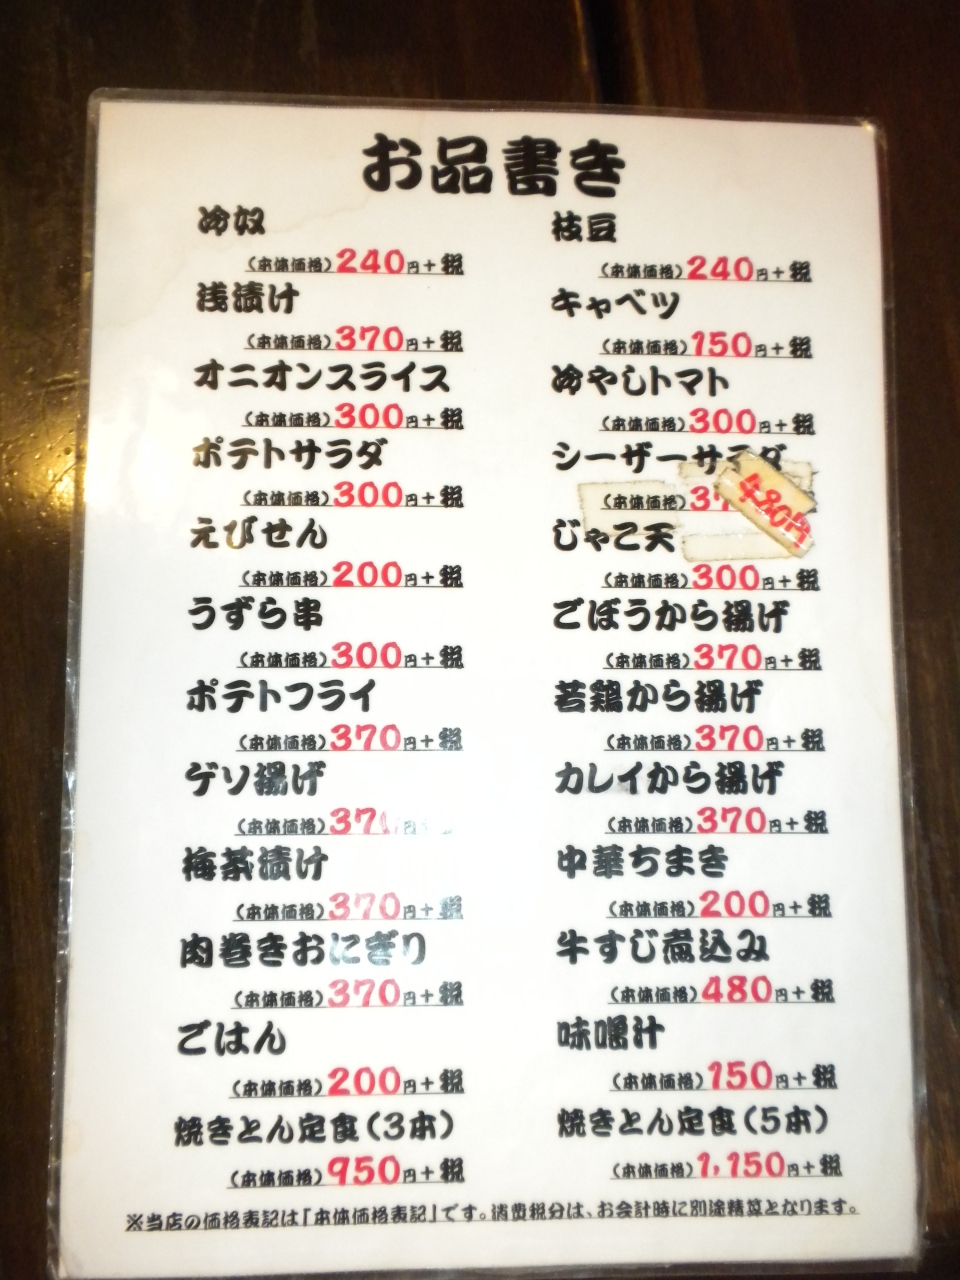 お品書き
冷奴
(本体価格)240円+税
浅漬け
(本体価格)370円+税
オニオンスライス
(本体価格)300円+税
ポテトサラダ
(本体価格)300円+税
えびせん
(本体価格)200円+税
うずら串
(本体価格)300円+税
ポテトフライ
(本体価格)370円+税
ゲソ揚げ
(本体価格)370円+税
梅茶漬け
(本体価格)370円+税
肉巻きおにぎり
(本体価格)370円+税
ごはん
(本体価格)200円+税
焼きとん定食(3本)
(本体価格)950円+税
枝豆
(本体価格)240円+税
キャベツ
(本体価格)150円+税
冷やしトマト
(本体価格)300円+税
シーザーサラダ
(本体価格)
480円
じゃこ天
(本体価格)300円+税
ごぼうから揚げ
(本体価格)370円+税
若鶏から揚げ
(本体価格)370円+税
カレイから揚げ
(本体価格)370円+税
中華ちまき
(本体価格)200円+税
牛すじ煮込み
(本体価格)480円+税
味噌汁
(本体価格)150円+税
焼きとん定食(5本)
(本体価格)1,150円+税
※当店の価格表記は「本体価格表記」です。消費税分は、お会計時に別途精算となります。